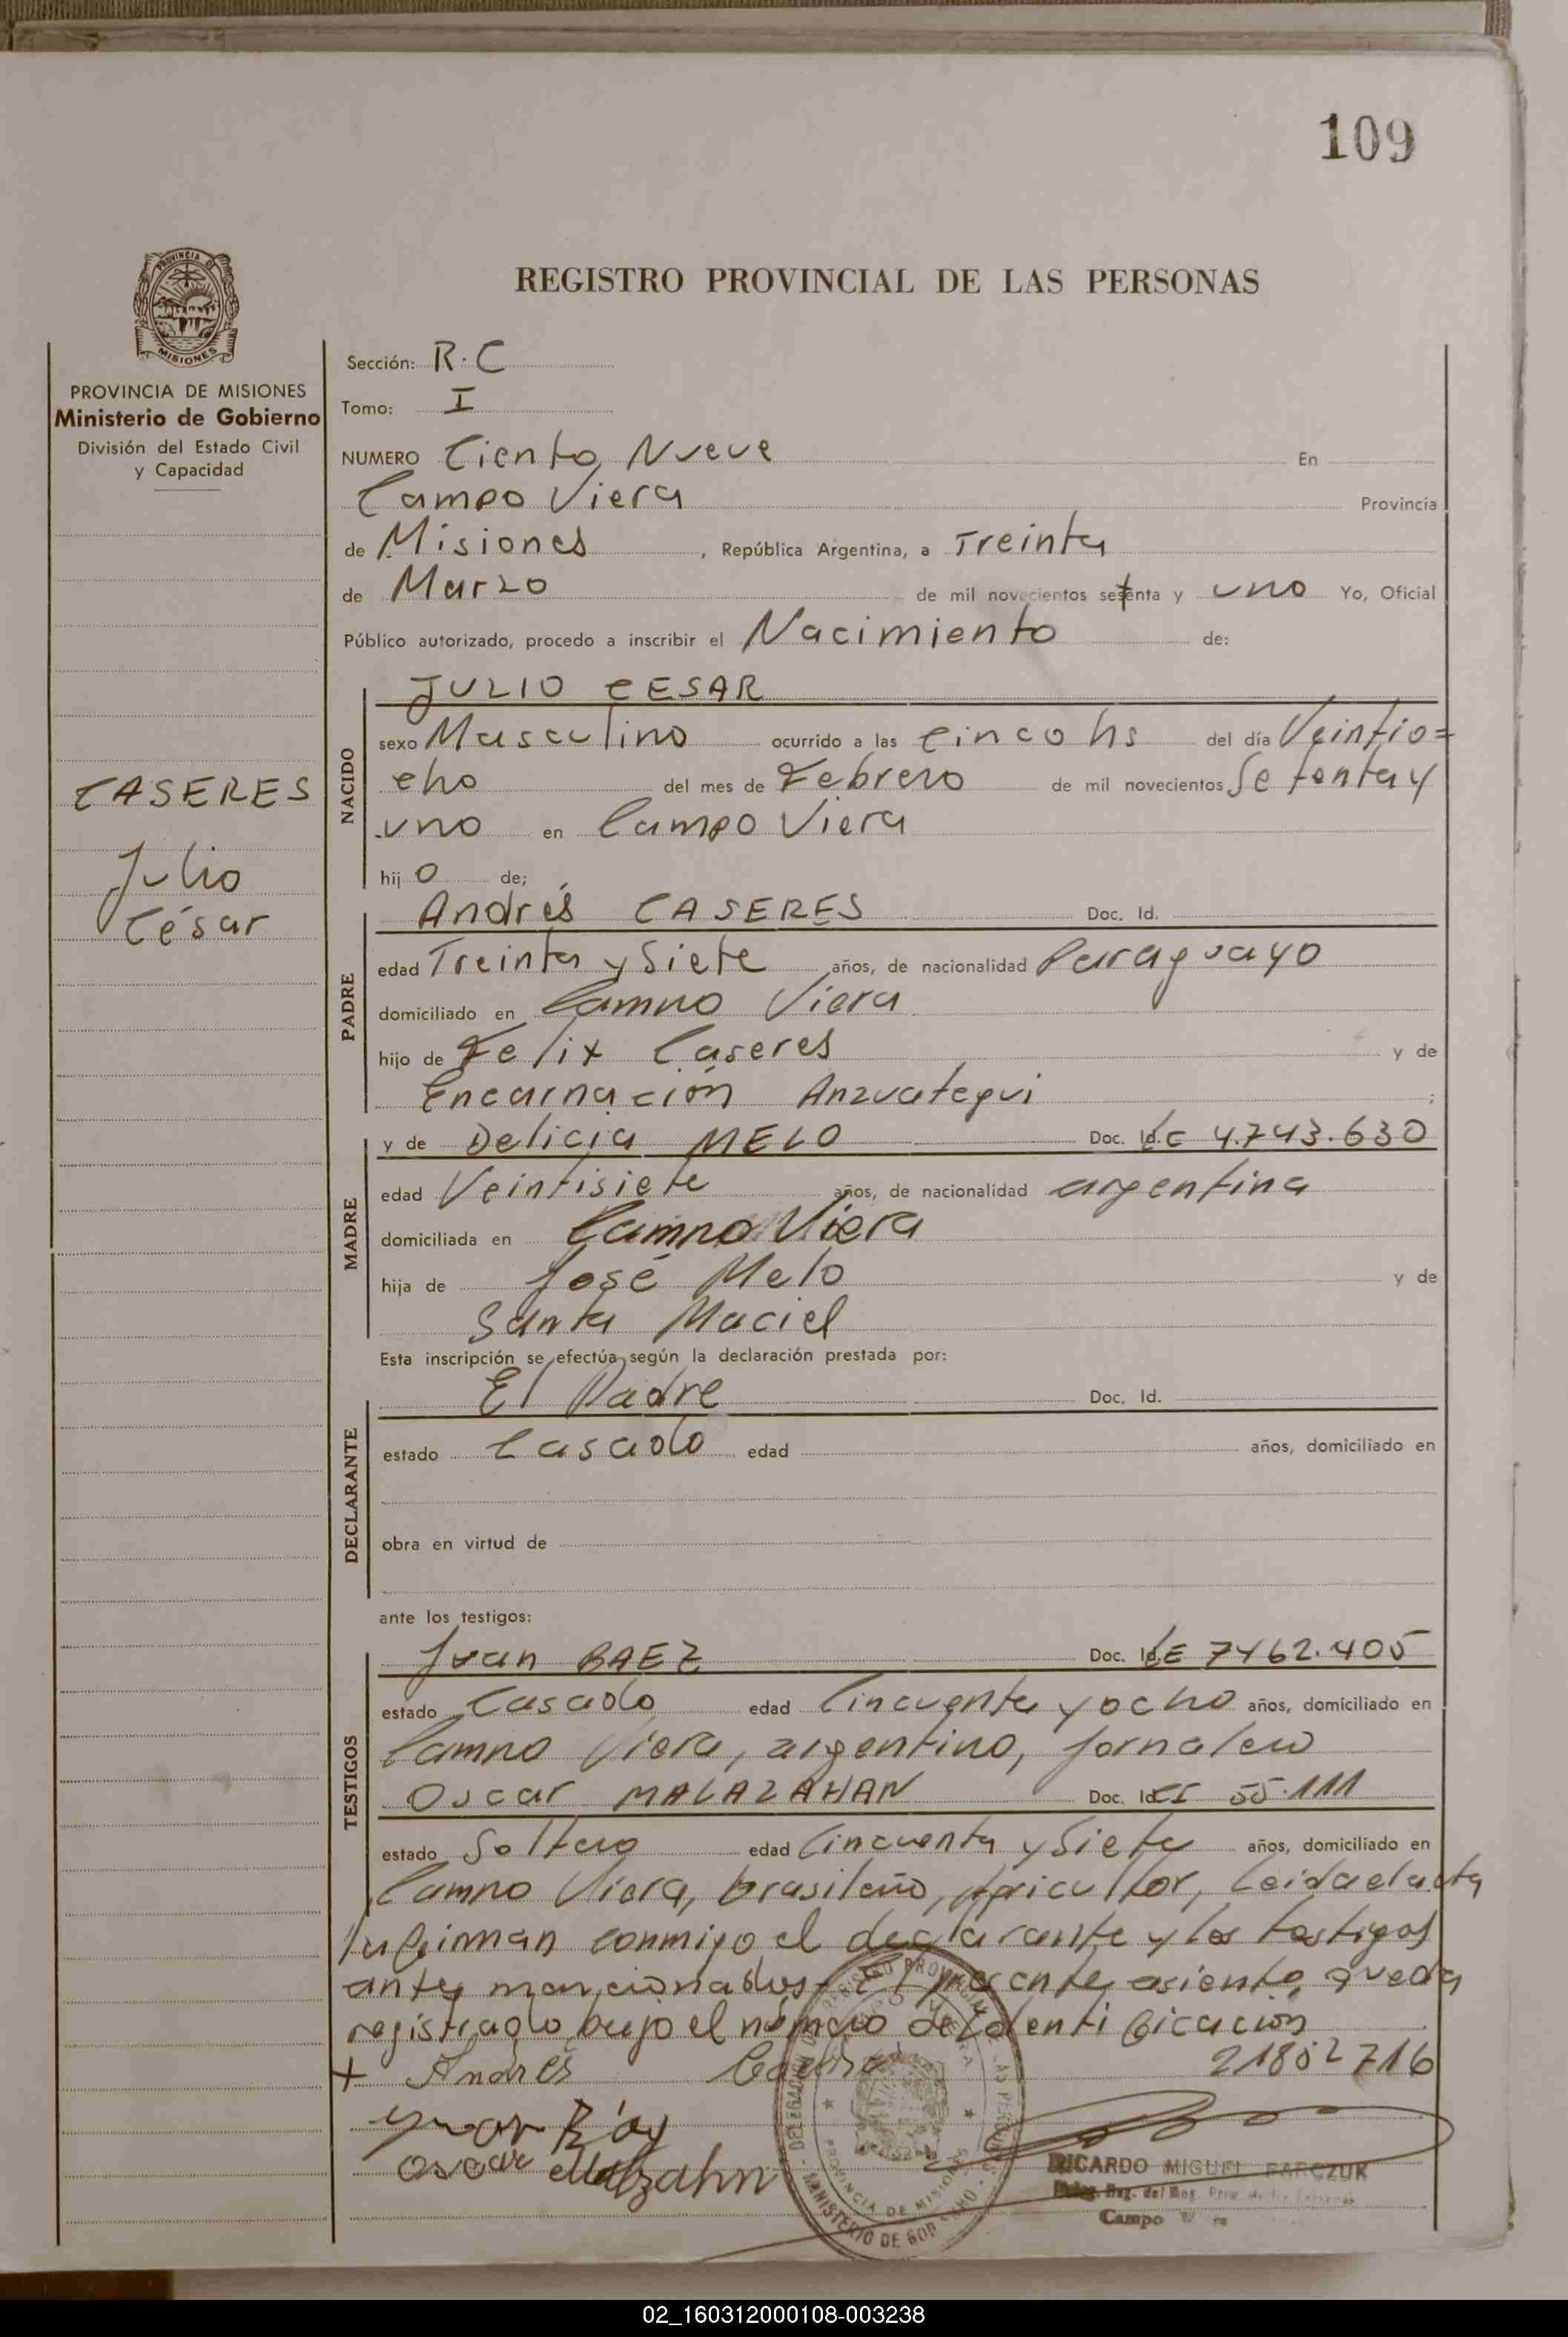 109
REGISTRO PROVINCIAL DE LAS PERSONAS
PROVINCIA DE MISIONES
MISIONES
PROVINCIA DE MISIONES
Ministerio de Gobierno
División del Estado Civil
y Capacidad
CASERES
Julio
César
Sección: R.C
Tomo: I
NUMERO Ciento Nueve En
Campo Viera Provincia
de Misiones, República Argentina, a Treinta
de Marzo de mil novecientos setenta y uno Yo, Oficial
Público autorizado, procedo a inscribir el Nacimiento de:
NACIDO
JULIO CESAR
sexo Masculino ocurrido a las cinco hs del día Veintio=
cho del mes de Febrero de mil novecientos Setenta y
uno en Campo Viera
hijo de;
PADRE
Andrés CASERES Doc. Id.
edad Treinta y Siete años, de nacionalidad Paraguayo
domiciliado en Campo Viera
hijo de Felix Caseres y de
Encarnación Anzuategui ;
MADRE
y de Delicia MELO Doc. Id. LC 4.743.630
edad Veintisiete años, de nacionalidad argentina
domiciliada en Campo Viera
hija de José Melo y de
Santa Maciel
Esta inscripción se efectúa según la declaración prestada por:
DECLARANTE
El Padre Doc. Id.
estado Casado edad años, domiciliado en
obra en virtud de
ante los testigos:
TESTIGOS
Juan BAEZ Doc. Id. LE 7462.405
estado Casado edad Cincuenta y ocho años, domiciliado en
Campo Viera, argentino, Jornalero
Oscar MALAZAHAN Doc. Id. CI 55.111
estado Soltero edad Cincuenta y Siete años, domiciliado en
Campo Viera, brasileño, Agricultor, Leida el acta
la firman conmigo el declarante y los testigos
antes mencionados - El presente asiento queda
registrado bajo el número de Identificación
21802716
+ Andrés
Oscar Malzahn
RICARDO MIGUEL PARCZUK
Campo
PROVINCIA DE MISIONES
MINISTERIO DE GOBIERNO
02_160312000108-003238